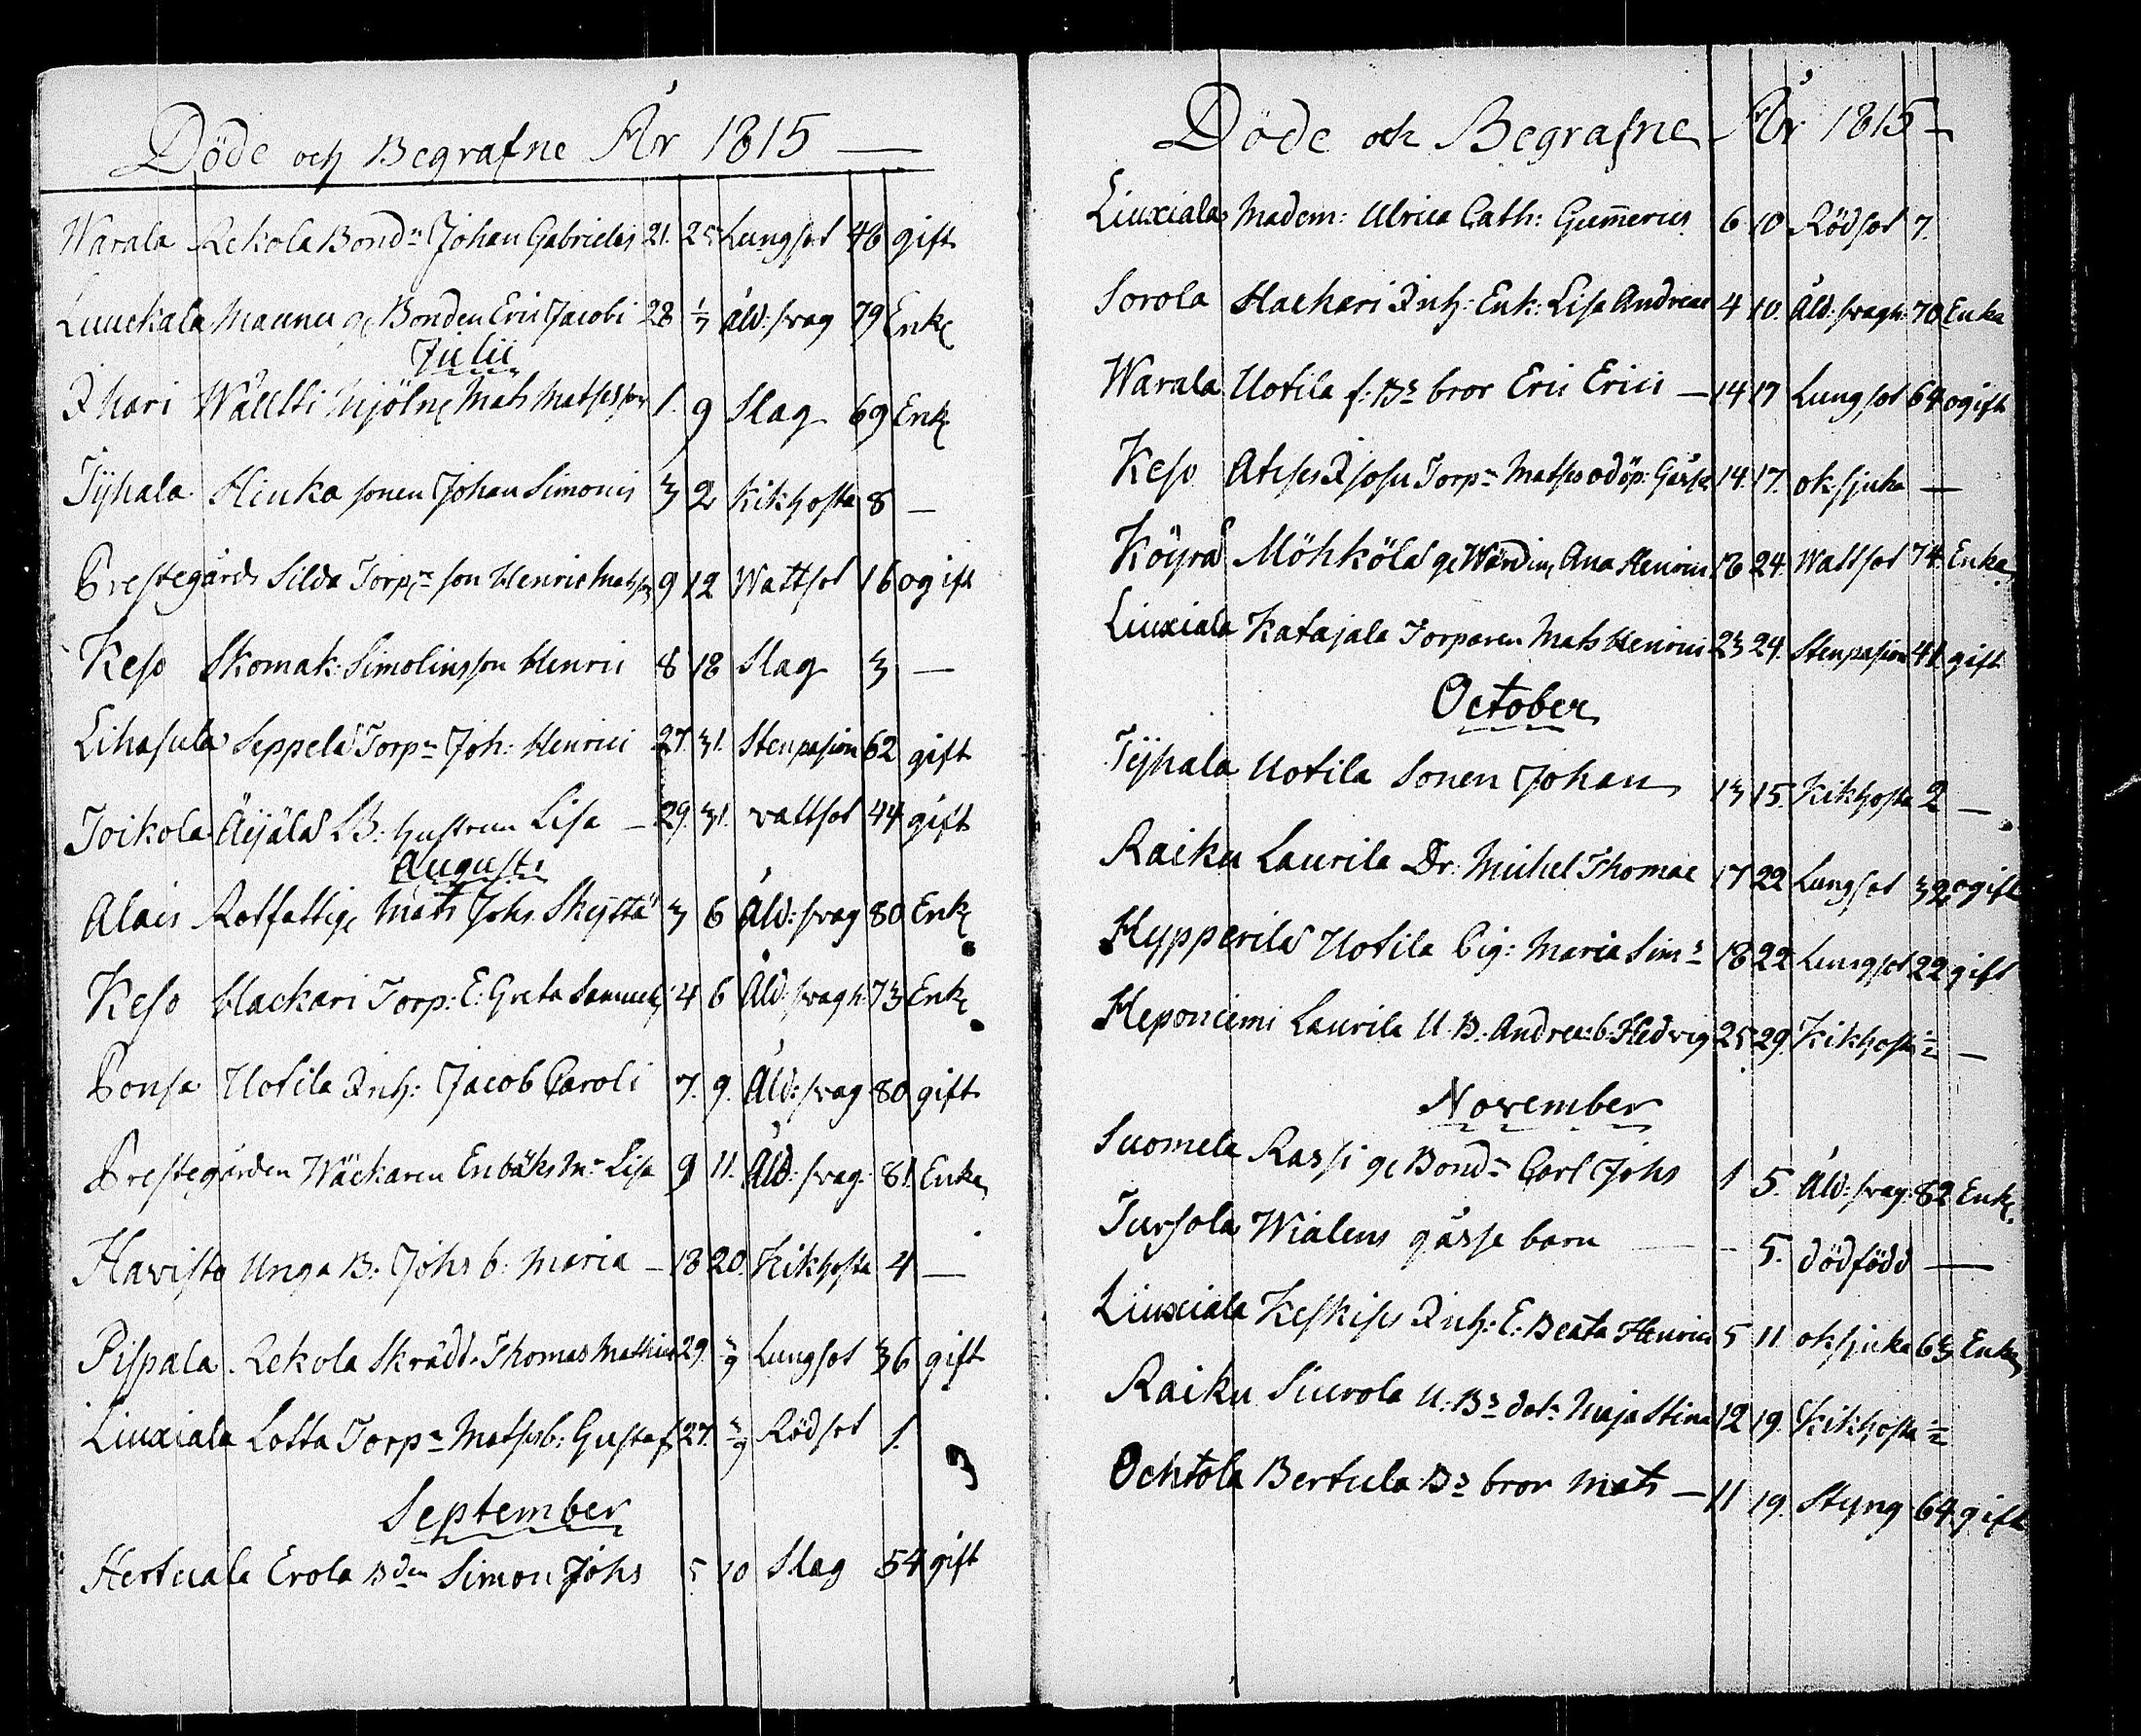 Döde och Begrafne År 1815 —
Warala Rekola Bondn Johan Gabrielis 21. 25 Lungsot 48 gift
Luuckala Maunu ge Bonden Eric Jacobi 28 1/7 Åld: svag 79 Enkl
Julii
Ihari Wälltti Mjöln Mats Matsson 1. 9 Slag 69 Enkl
Tÿhala Hiuka sonen Johan Simonis 3 2 Kikhosta 8 —
Prestegårds Silda Torprs son Henric Matsson 9 12 Wattsot 16 ogift
Keso Skomak: Simolinsson Henric 8 18 Slag 3 —
Lihasula Seppelä Torpn Joh: Henrici 27. 31. Stenpasion 62 gift
Toikola Äÿälä LB: hustrun Lisa — 29. 31. vattsot 44 gift
Augusti
Alais Rotfattige Mats Johs Skÿttä 3 6 Åld: svag 80 Enkl
Keso Hackari Torp: E: Greta Samuels 4 6 Åld: svagh: 73 Enkl
Ponsa Uotila Inh: Jacob Caroli 7. 9. Åld: svag 80 gift
Prestegården Wäckaren Enbäks Mr Lisa 9 11. Åld: svag: 81. Enka
Havisto Unga B: Johs b: Maria — 18 20. Kikhosta 4 —
Pispala Rekola Skrädd: Thomas Mathiæ 29. 3/9 Lungsot 36 gift
Liuxiala Lotta Torpn Matsb: Gustaf 27. 3/9 Rödsot 1.
September
Hertuala Erola Bden Simon Johs 5 10 Slag 54 gift
Döde och Begrafne År 1815 —
Liuxiala Madem: Ulrica Cath: Gummerus 6 10 Rödsot 7.
Sorola Hackari Inh: Enk: Lisa Andreae 4 10. Åld: svagh: 70 Enka
Warala Uotila f: Bs bror Eric Erici — 14 17 Lungsot 64 ogift
Keso Torpn Mats odöp: Gåsse 14. 17. oksjuka —
Köyrä Möhkölä ge Wärdin Ana Henrici 16 24. Wattsot 74 Enka
Liuxiala Katajala Torparen Mats Henrici 23 24. Stenpasion 41 gift
October
Tÿhala Uotila Sonen Johan 13 15. Kikhosta 2 —
Raiku Laurila Dr: Michel Thomae 17 22 Lungsot 32 ogift
Hypperilä Uotila Pig: Maria Sims 18 22 Lungsot 22 gift
Heponiemi Laurila U. B. Andrea: b: Hedvig 25 29. Kikhosta 1/2 —
November
Suomela Rassi ge Bondn Carl Johs 1 5. Åld: svag: 82 Enkl
Tursola Wialens gåsse barn — 5. dödfödd —
Liuxiala Keskis Inh: E: Beata Henrici 5 11 oksjuka 63 Enka
Raiku Siurola U: Bs dotr Maja Stina 12 19. Kikhosta 1/2
Ochtola Bertula Bs bror Mats — 11 19. Styng 64 gift